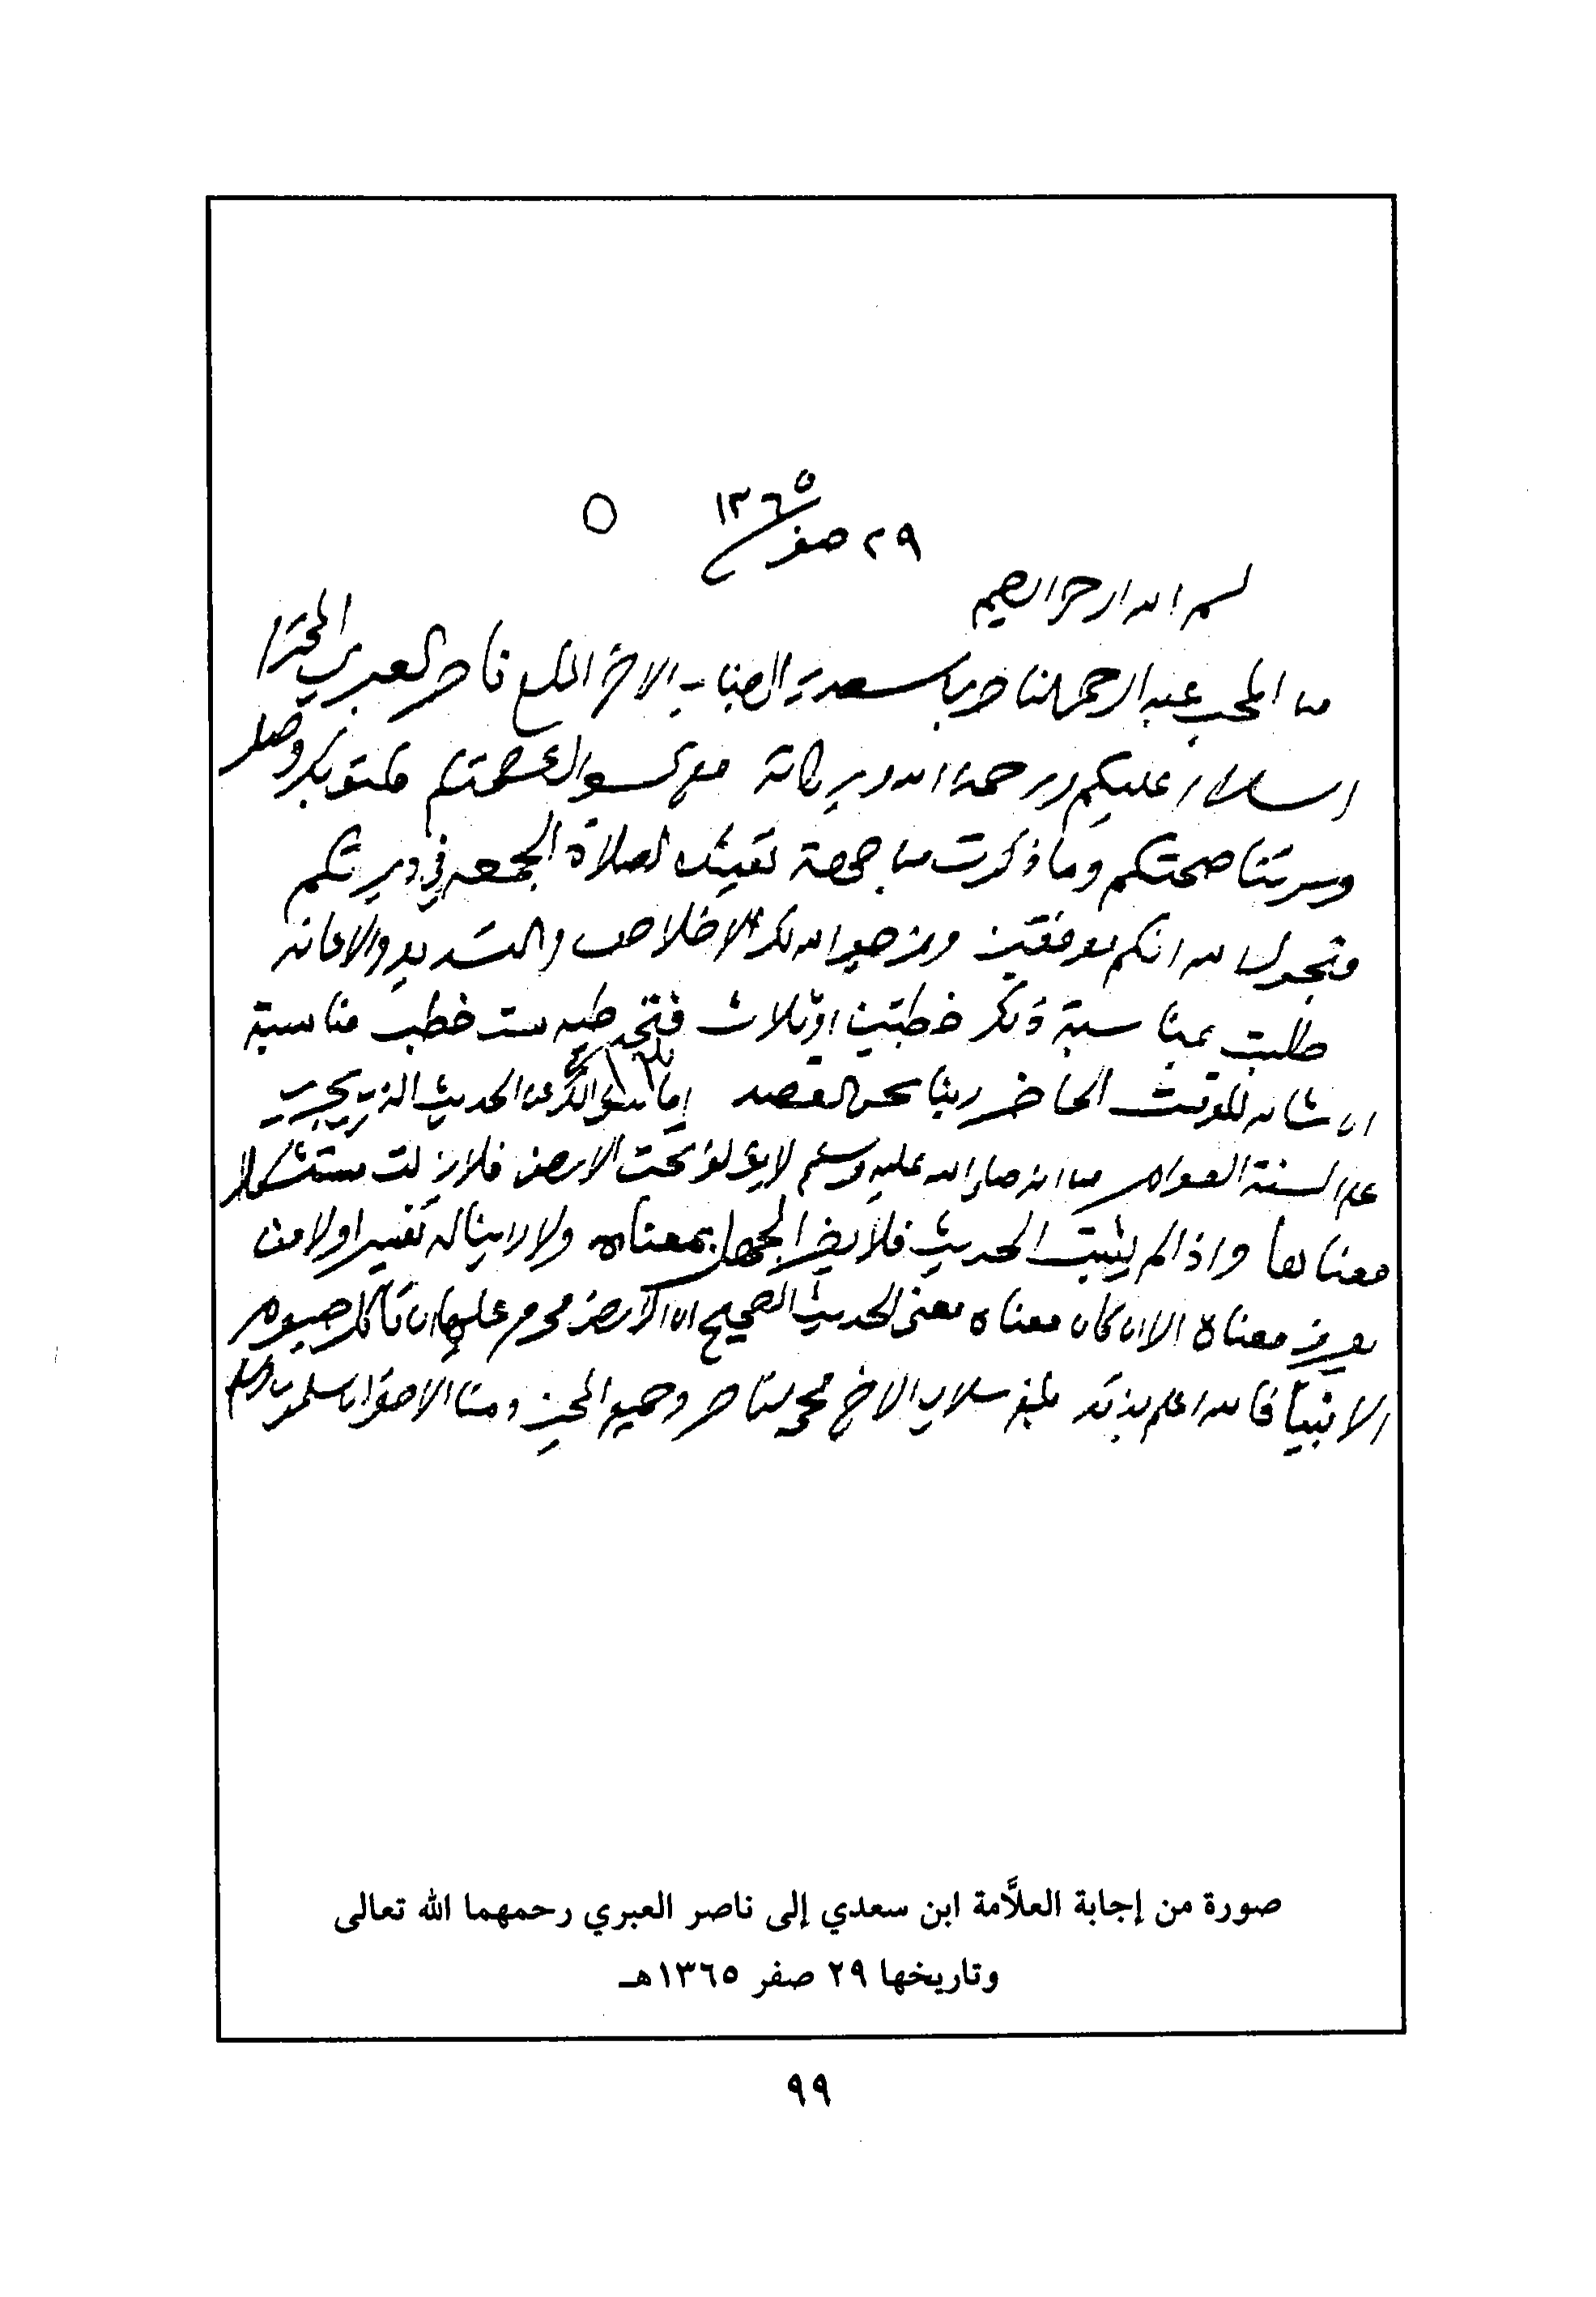 ٢٩ صفر ١٣٦٥
بسم الله الرحمن الرحيم
من المحب عبد الرحمن الناصر بن سعدي الى جناب الاخ المكرم ناصر العبري المحترم
السلام عليكم ورحمة الله وبركاته مع السوال عن صحتكم مكتوبكم وصل
وسرتنا صحتكم وما ذكرت من جهة تعينك لصلاة الجمعه في ديرتكم
الله انكم موفقين ونرجو الله لكم الاخلاص والتسديد والاعانه
طلبت بمناسبة ذلك خطبتين او ثلاث فتجد طيه ست خطب مناسبة
ان شا الله للوقت الحاضر القصد اما سوالك عن الحديث الذي يجري
على السنة العوام من انه صلى الله عليه وسلم لا يؤلف تحت الارض فلا زلت مستشكلا
معناها واذا لم يثبت الحديث فلا يضر الجهل بمعناه ولا راينا له تفسير ولا من
يعرف معناه الا ان كان معناه معنى الحديث الصحيح ان الارض محرم عليها ان تاكل جسوم
الانبيا فالله اعلم بذلك بلغ سلامي الاخ محمد الناصر وجميع المحبين ومنا الاخوان يسلمون والسلام
صورة من إجابة العلاَّمة ابن سعدي إلى ناصر العبري رحمهما الله تعالى
وتاريخها ٢٩ صفر ١٣٦٥هـ
٩٩